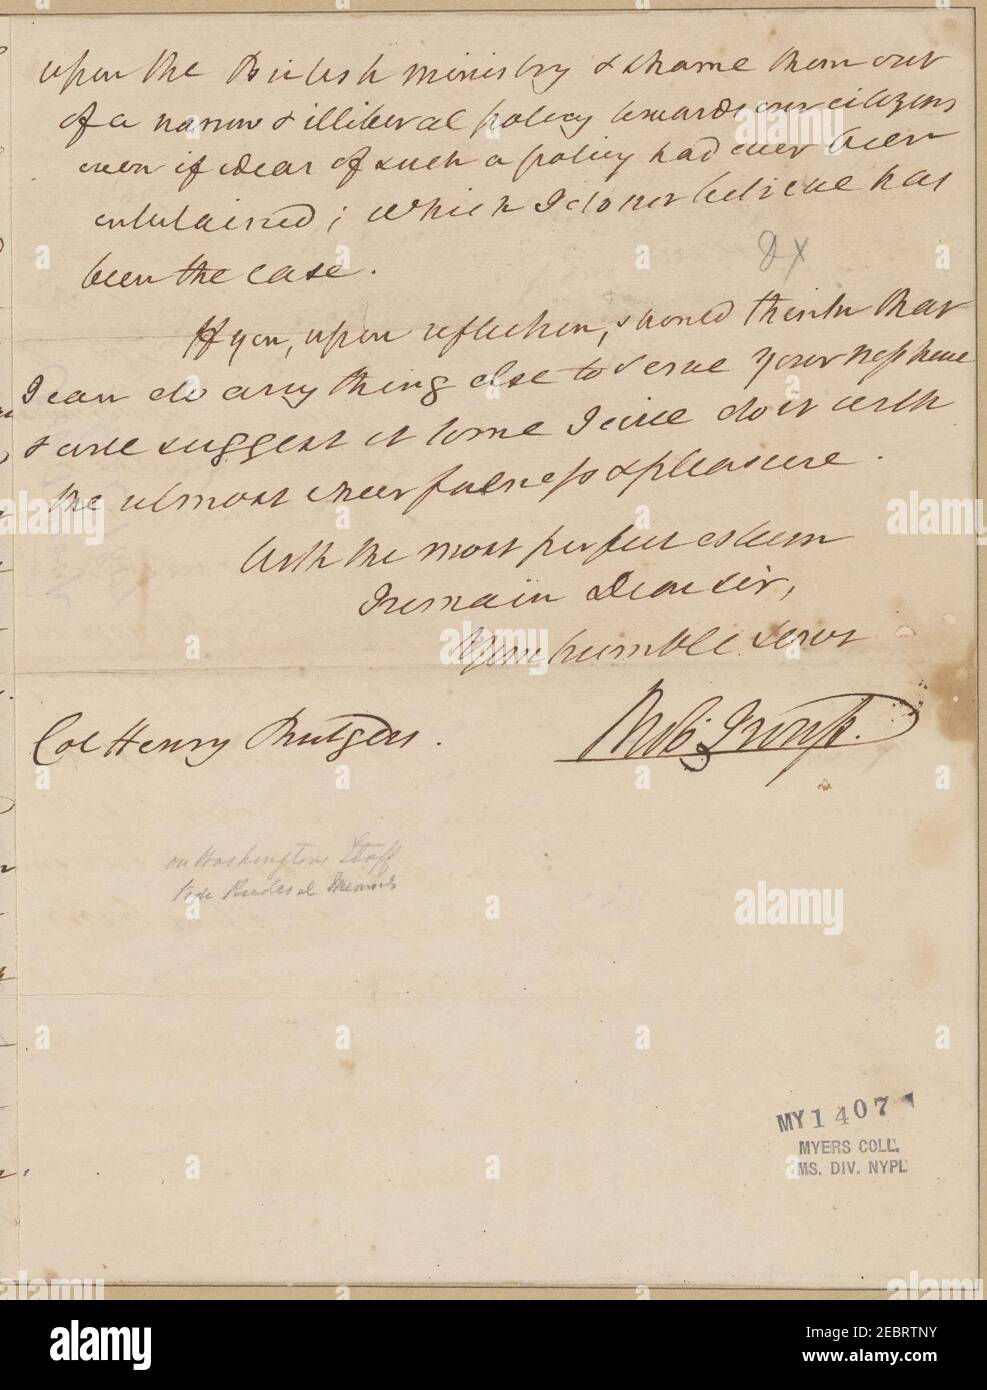 upon the British ministry & shame them out
of a narrow & illiberal policy towards our citizens
even if idear of such a policy had ever been
entertained; which I do not believe has
been the case.
If you, upon reflection, should think that
I can do any thing else to serve your nephew
& will suggest it to me I will do it with
the utmost cheerfulness & pleasure.
With the most perfect esteem
I remain Dear sir,
Your humble servt
Rob: Troup.
Col Henry Rutgers.
on Washingtons Staff
MY 1407
MYERS COLL.
MS. DIV. NYPL
alamy
Image ID: 2EBRTNY
www.alamy.com